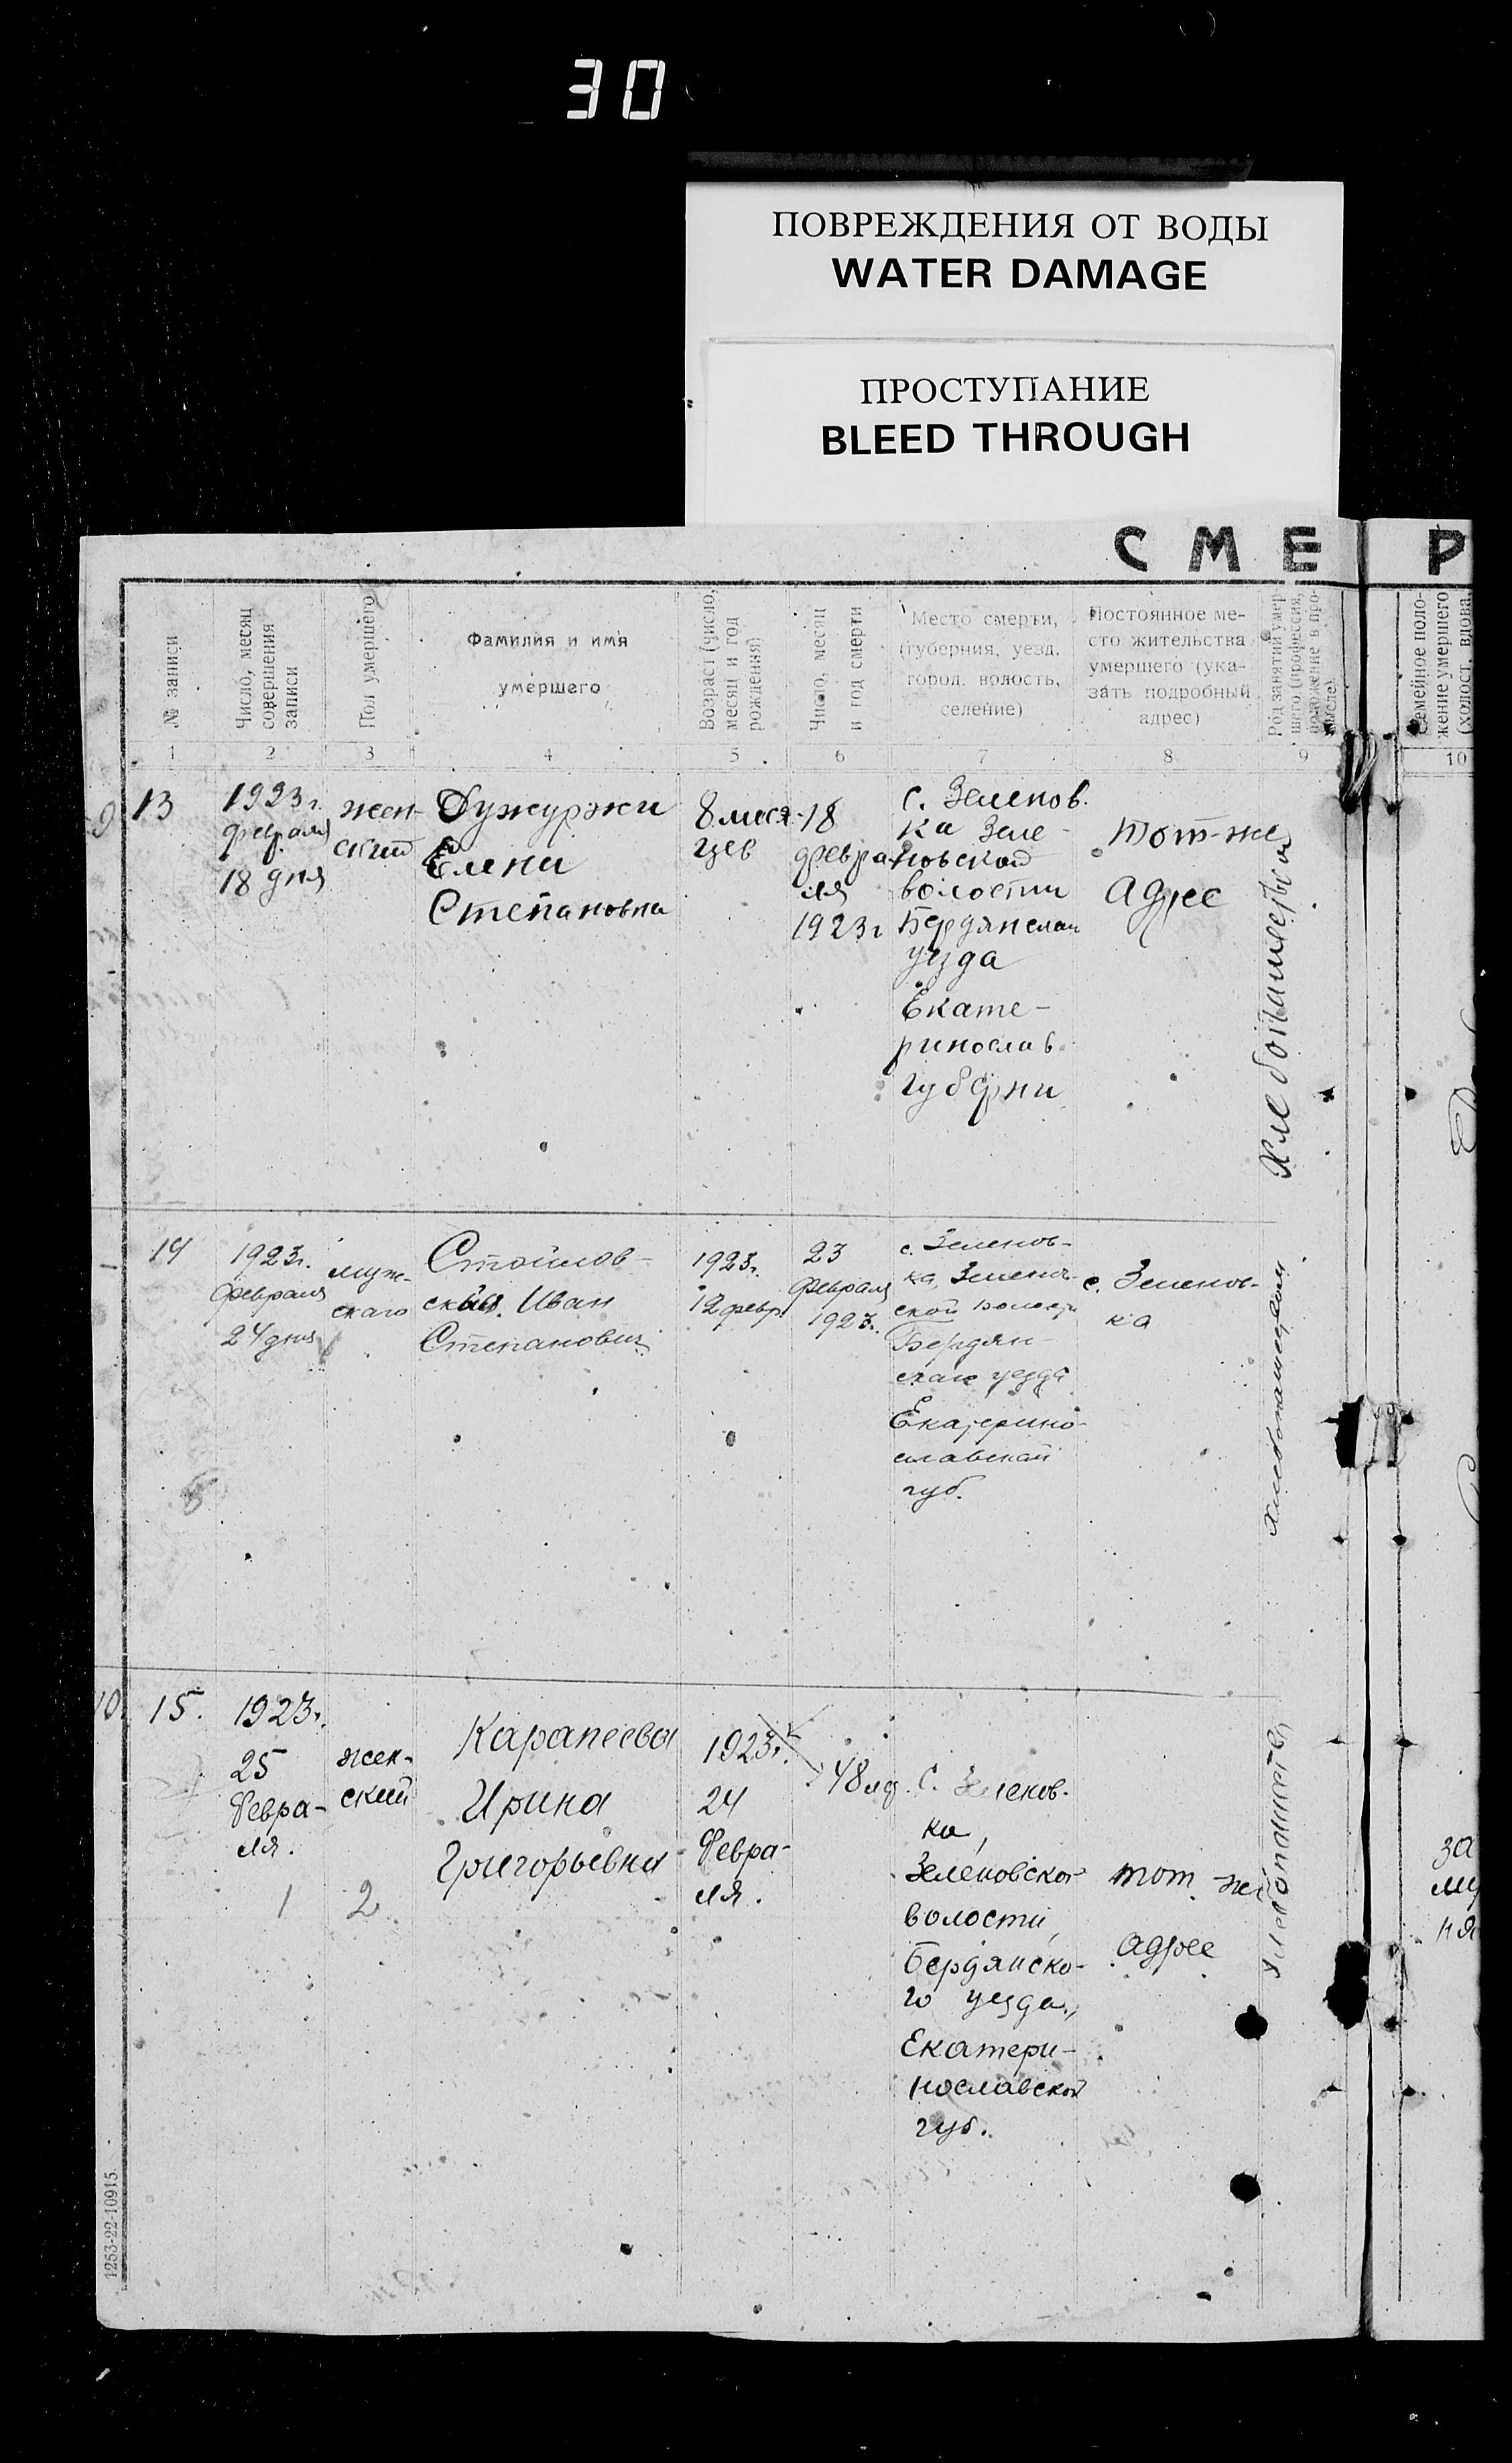 30
ПОВРЕЖДЕНИЯ ОТ ВОДЫ
WATER DAMAGE
ПРОСТУПАНИЕ
BLEED THROUGH
С М Е Р
№ записи
Число, месяц
совершения
записи
Пол умершего
Фамилия и имя
умершего
Возраст (число,
месяц и год
рождения)
Число, месяц
и год смерти
Место смерти,
(губерния, уезд,
город, волость,
селение)
Постоянное ме-
сто жительства
умершего (ука-
зать подробный
адрес)
Род занятий умер-
шего (профессия,
положение в про-
мысле)
Семейное поло-
жение умершего
(холост, вдова,
1
2
3
4
5
6
7
8
9
10
9
13
1923 г.
февраля
18 дня
жен-
ский
Дужуржи
Елена
Степановна
8 меся-
цев
18
февра-
ля
1923 г
с. Зеленов.
ка Зеле-
новской
волости
Бердянскаи
уезда
Екате-
ринослав.
губерни
тот-же
адрес
14
1923 г.
февраля
24 дня
муж-
скаго
Стоилов-
ский. Иван
Степанович
1923 г.
12 февр.
23
февраля
1923 г.
с. Зеленов-
ка, Зеленов-
ской волости
Бердян-
скаго уезда
Екатерино-
славской
губ.
с. Зеленов-
ка
10
15.
1923 г.
25
Февра-
ля.
1
жен-
ский
2
Карапеева
Ирина
Григорьевна
1923 г.
24
Февра-
ля.
48 лд.
с. Зеленов.
ка,
Зеленовской
волости,
Бердянско-
го уезда,
Екатери-
нославской
губ.
тот-же
адрес
Хлебопашество
за
му
ня
1253-22-10915